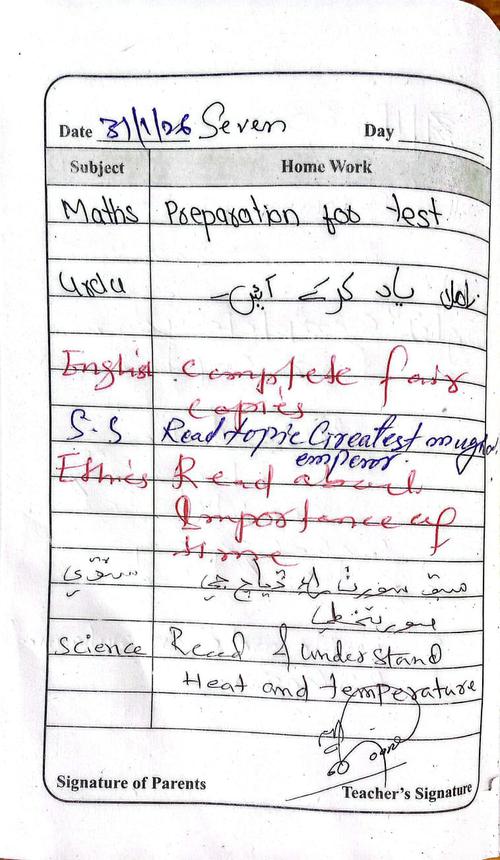 Date 31/1/26 Seven Day
Subject Home Work
Maths Preparation for test
Urdu یاد کرکے آئیں۔
English Complete fair
copies
S.S Read topic Greatest mughal
emperor.
Ethics Read about
Importance of
time
سنڌي سبق
Science Read & understand
Heat and temperature
Signature of Parents Teacher's Signature